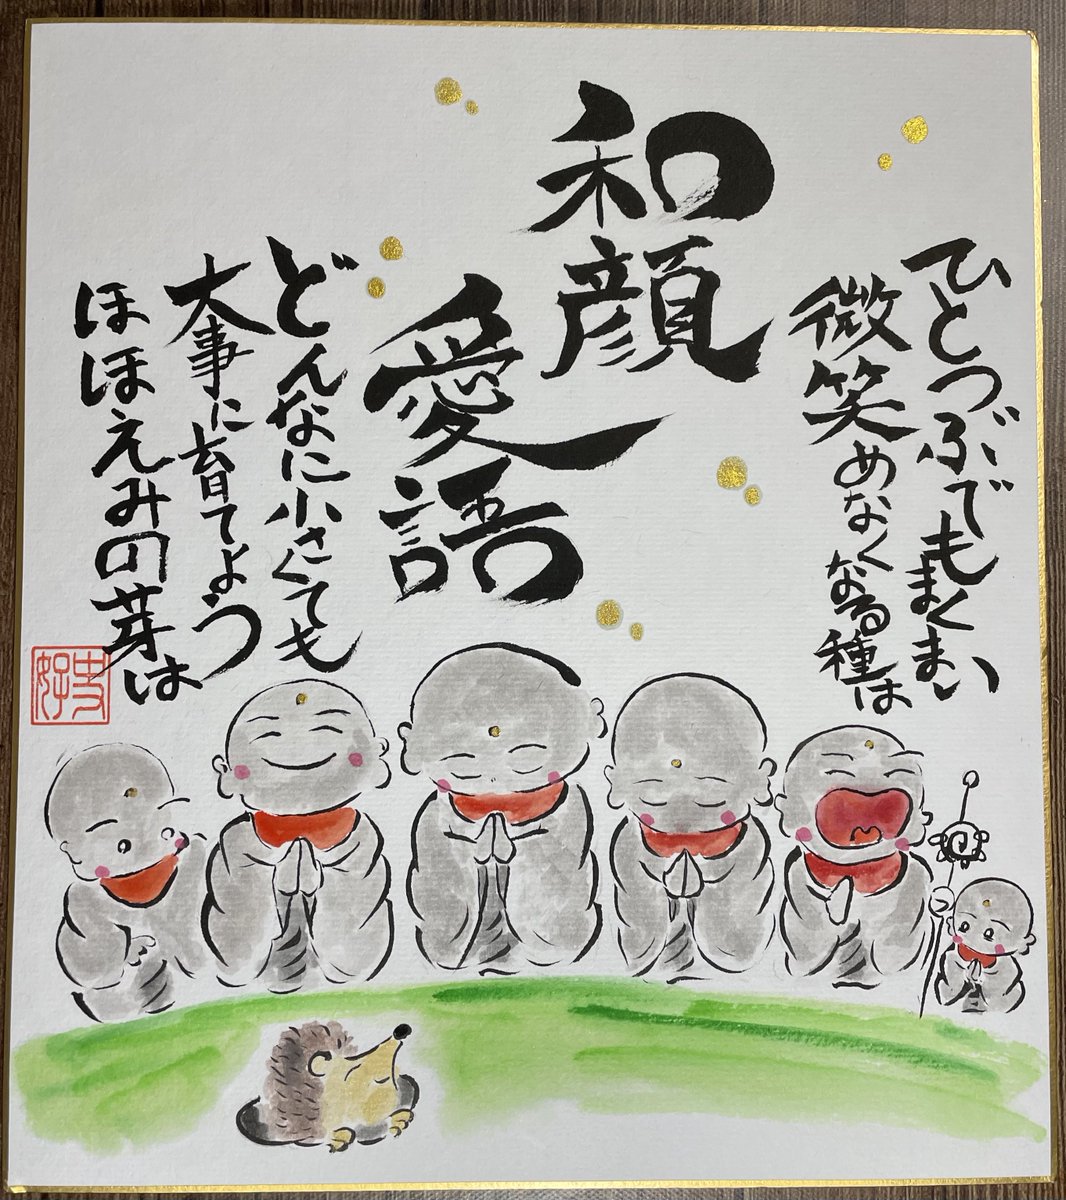 ひとつぶでもまくまい
微笑めなくなる種は
和顔
愛語
どんなに小さくても
大事に育てよう
ほほえみの芽は